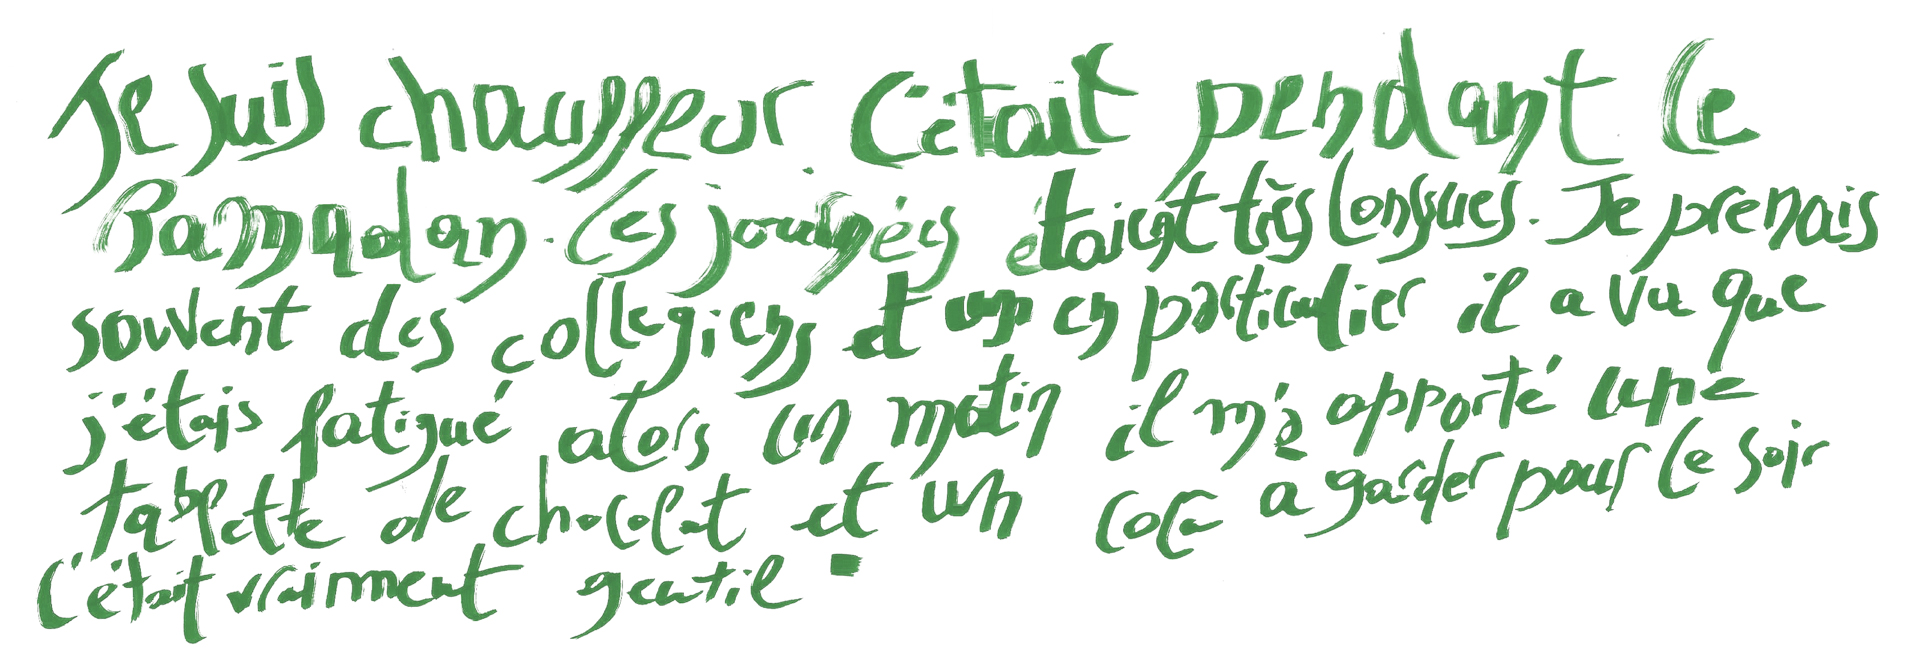 Je suis chauffeur C'était pendant le
Ramadan. Les journées étaient très longues. Je prenais
souvent des collegiens et un en particulier il a vu que
j'étais fatigué alors un matin il m'a apporté une
tablette de chocolat et un coca a garder pour le soir
C'était vraiment gentil